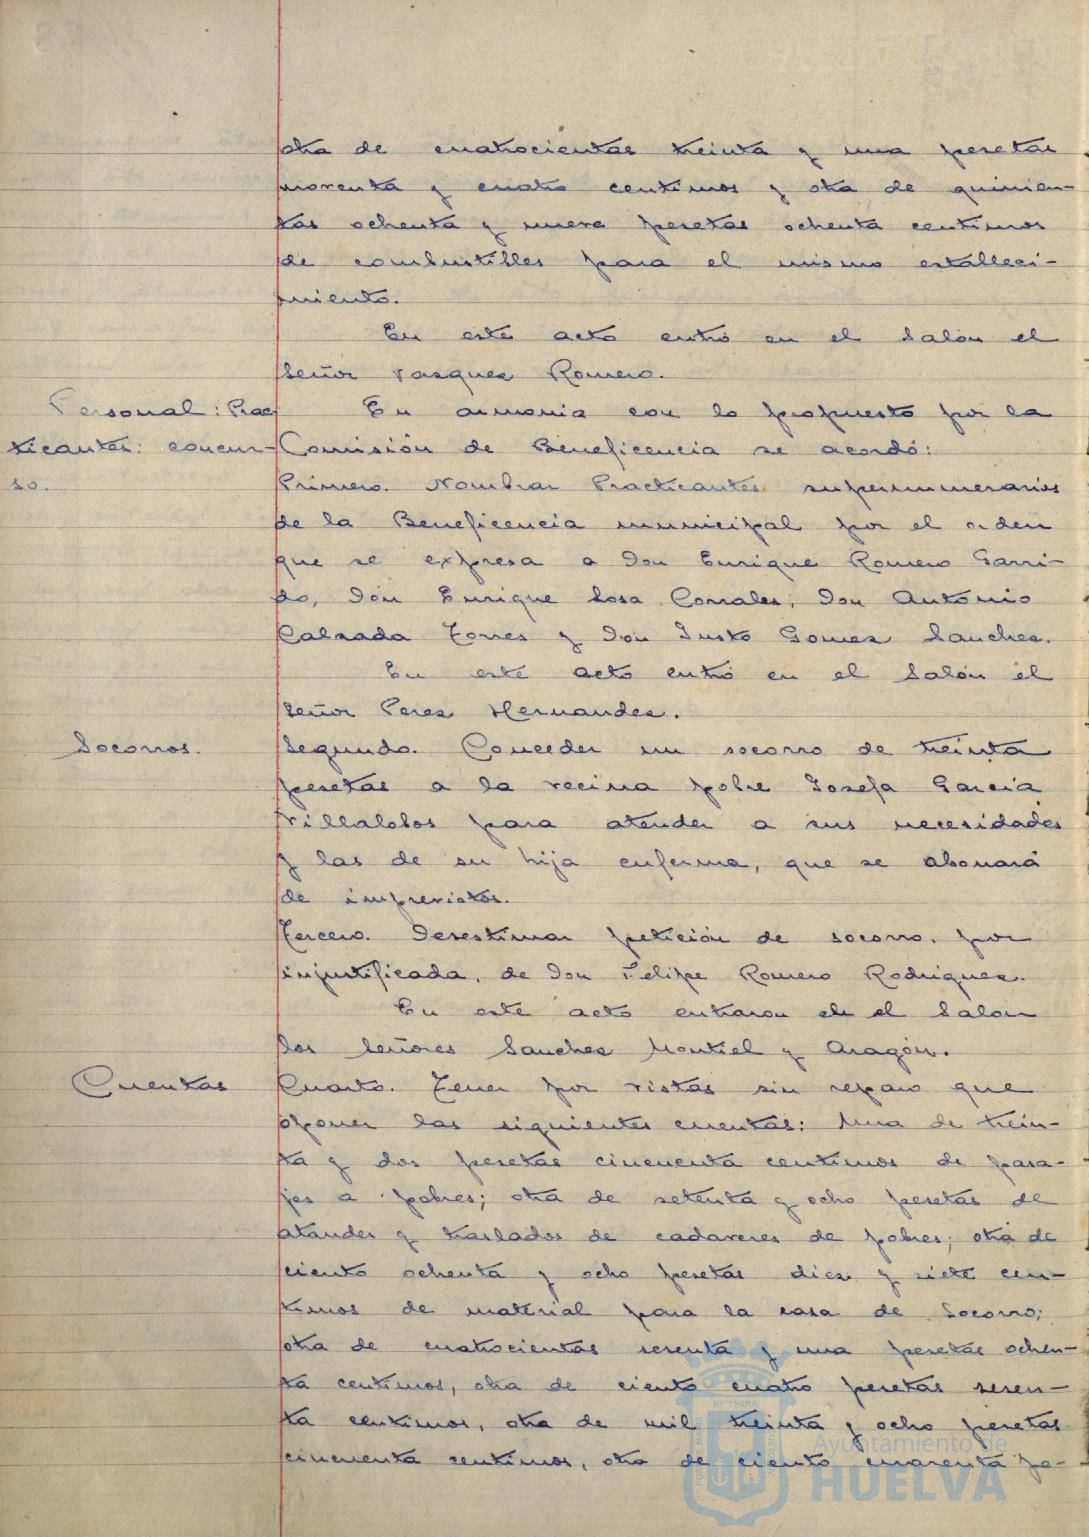 otra de cuatrocientas treinta y una pesetas
noventa y cuatro centimos y otra de quinien-
tas ochenta y nueve pesetas ochenta centimos
de combustibles para el mismo estableci-
miento.
En este acto entró en el Salón el
Señor Vazquez Romero.
Personal: Prac
ticantes: concur-
so.
En armonia con lo propuesto por la
Comisión de Beneficencia se acordó:
Primero. Nombrar Practicantes supernumerarios
de la Beneficencia municipal por el orden
que se expresa a Don Enrique Romero Garri-
do, Don Enrique Sosa Corrales, Don Antonio
Calzada Torres y Don Justo Gomez Sanchez.
En este acto entró en el Salón el
Señor Perez Hernandez.
Socorros.
Segundo. Conceder un socorro de treinta
pesetas a la vecina pobre Josefa García
Villalobos para atender a sus necesidades
y las de su hija enferma, que se abonará
de imprevistos.
Tercero. Desestimar petición de socorro, por
injustificada, de Don Felipe Romero Rodriguez.
En este acto entraron en el Salon
los Señores Sanchez Montiel y Aragón.
Cuentas
Cuarto. Tener por vistas sin reparo que
oponer las siguientes cuentas: Una de trein-
ta y dos pesetas cincuenta centimos de pasa-
jes a pobres; otra de setenta y ocho pesetas de
ataudes y traslados de cadaveres de pobres; otra de
ciento ochenta y ocho pesetas diez y siete cen-
timos de material para la casa de Socorro;
otra de cuatrocientas sesenta y una pesetas ochen-
ta centimos, otra de ciento cuatro pesetas sesen-
ta centimos, otra de mil treinta y ocho pesetas
cincuenta centimos, otra de ciento cuarenta pe-
Ayuntamiento de
HUELVA